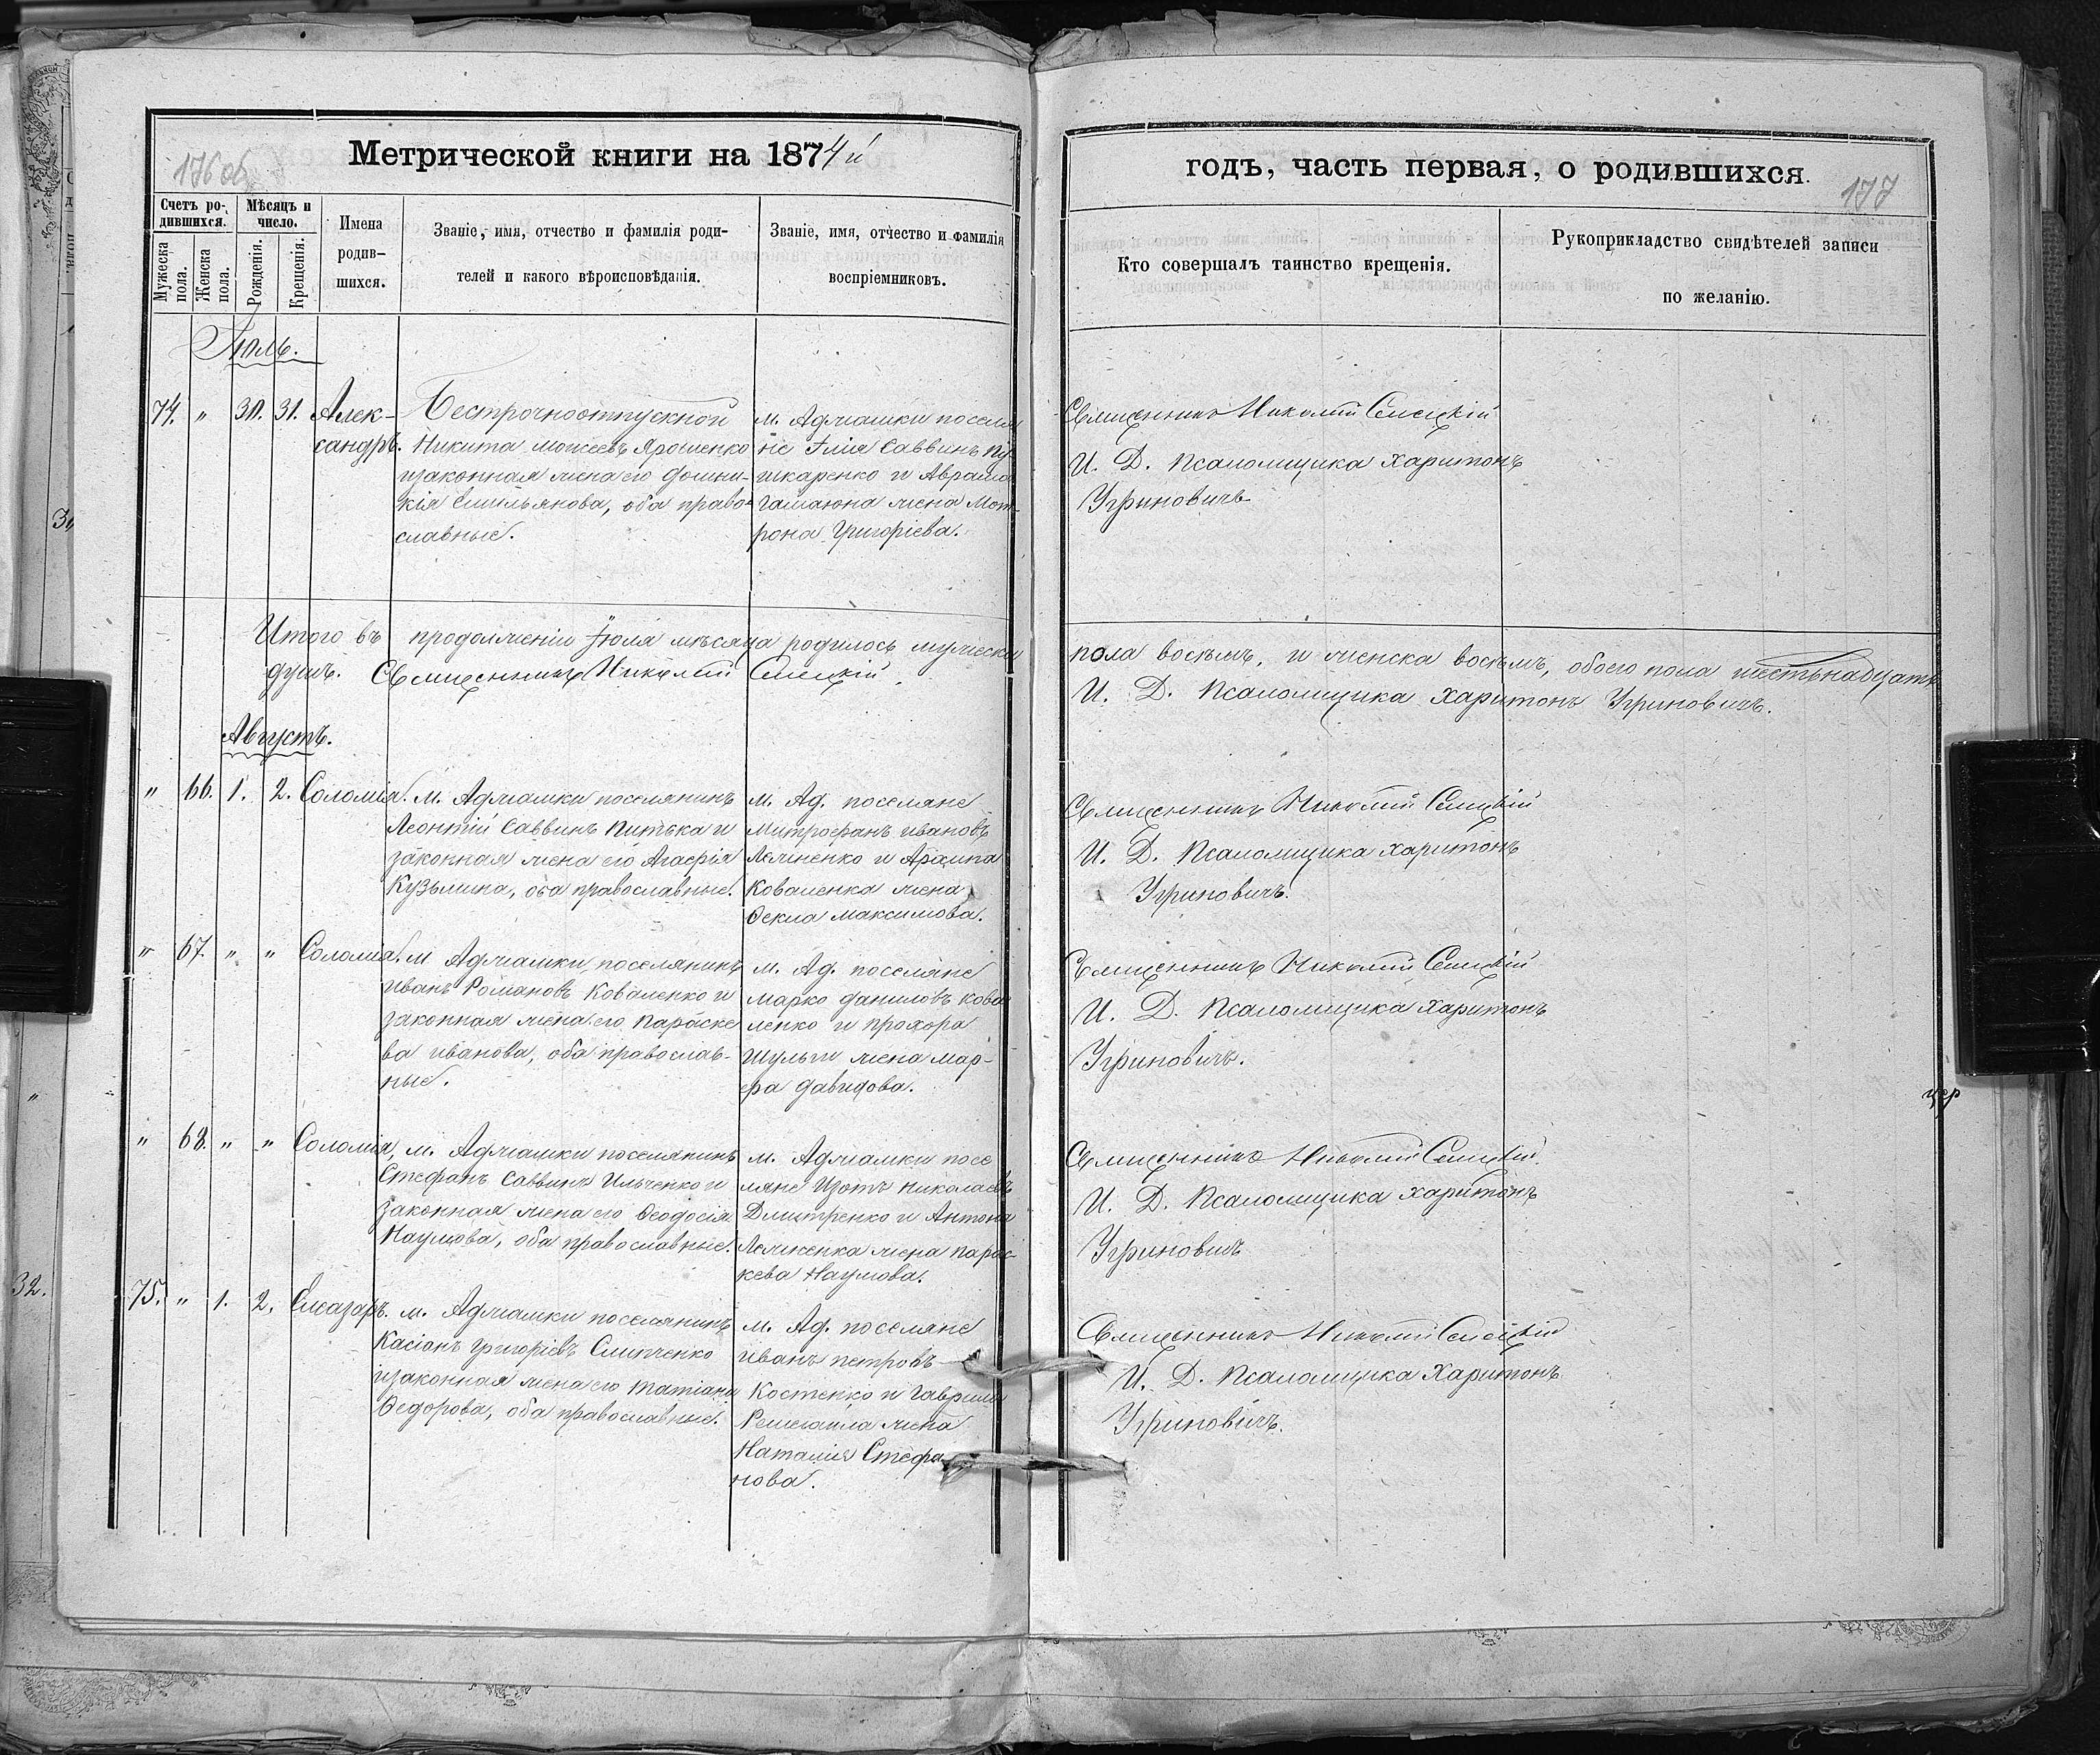 176 об
Метрической книги на 1874 й
Счетъ родившихся.
Мѣсяцъ и число.
Мужеска пола.
Женска пола.
Рожденія.
Крещенія.
Имена родившихся.
Званіе, имя, отчество и фамилія родителей и какого вѣроисповѣданія.
Званіе, имя, отчество и фамилія воспріемниковъ.
годъ, часть первая, о родившихся.
177
Кто совершалъ таинство крещенія.
Рукоприкладство свидѣтелей записи по желанію.
Іюль.
74. " 30. 31. Алек-
сандръ.
Безсрочноотпускной
Никита Моисеевъ Ярошенко
и законная жена его Домни-
кія Емильянова, оба право-
славные.
м. Аджамки поселя
не Илія Саввинъ Пу
шкаренко и Аврама
Гамаюна жена Мот-
рона Григоріева.
Священникъ Николай
И. Д. Псаломщика Харитонъ
Угриновичъ
Итого въ продолженіи Іюля мѣсяца родилось мужеска
пола восемь, и женска восемь, обоего пола шестьнадцать
душъ. Священникъ Николай
И. Д. Псаломщика Харитонъ Угриновичъ.
Августъ.
" 66. 1. 2. Соломія.
м. Аджамки поселянинъ
Леонтій Саввинъ Питька и
законная жена его Агафія
Кузьмина, оба православные.
м. Ад. поселяне
Митрофанъ Ивановъ
и
Коваленка жена
Ѳекла Максимова.
Священникъ Николай
И. Д. Псаломщика Харитонъ
Угриновичъ.
" 67. " " Соломія.
м Аджамки поселянинъ
Иванъ Романовъ Коваленко и
законная жена его Параске
ва Иванова, оба православ-
ные.
м. Ад. поселяне
Марко Даниловъ Кова
ленко и Прохора
Шульги жена Мар-
фа Давидова.
Священникъ Николай
И. Д. Псаломщика Харитонъ
Угриновичъ.
" 68. " " Соломія,
м. Аджамки поселянинъ
Стефанъ Саввинъ Ильченко и
законная жена его Ѳеодосія
Наумова, оба православные.
м. Аджамки посе
ляне Изотъ Николаевъ
Дмитренко и Антона
жена Парас-
кева Наумова.
Священникъ Николай
И. Д. Псаломщика Харитонъ
Угриновичъ
75. " 1. 2. Елеазаръ.
м. Аджамки поселянинъ
Касіанъ Григоріевъ Слипченко
и законная жена его Татіана
Ѳедорова, оба православные.
м. Ад. поселяне
Иванъ Петровъ
Костенко и Гавриила
жена
Наталія Стефа
нова.
Священникъ Николай
И. Д. Псаломщика Харитонъ
Угриновичъ.
32.